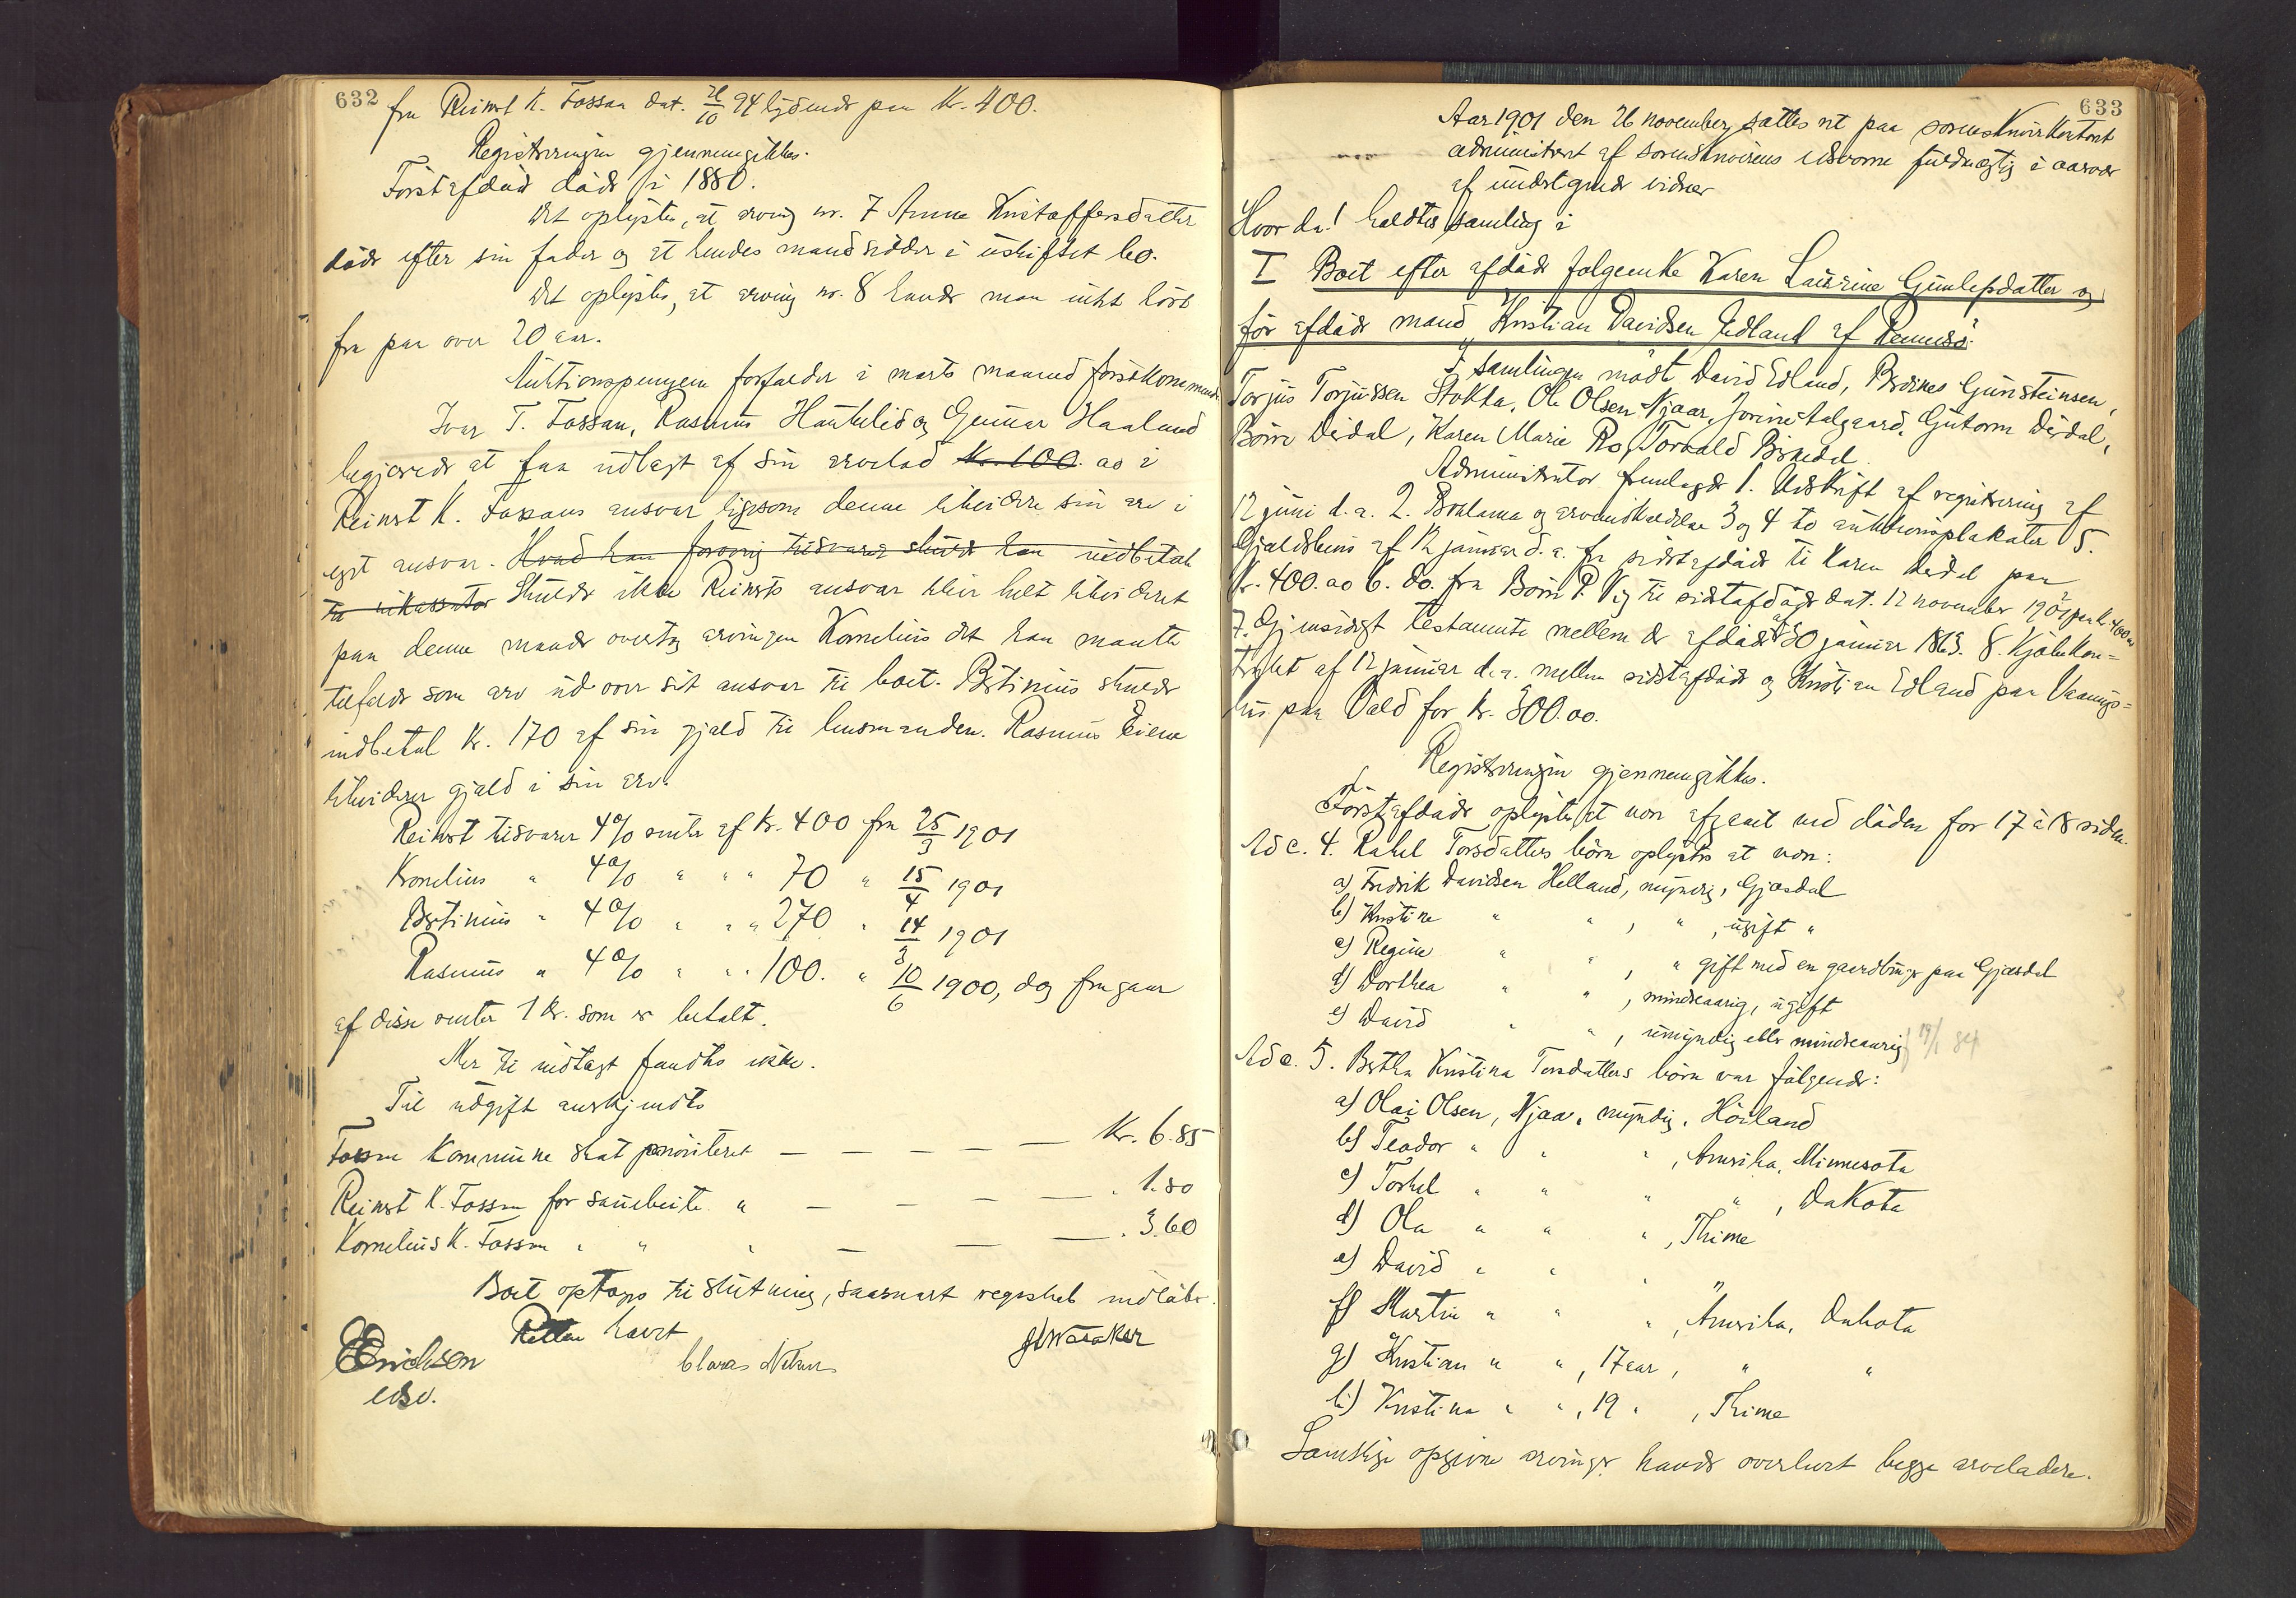 632
fra Reinert K. Fossan dat. 26/10 94 lydende paa Kr. 400.
Registreringen gjennemgikkes.
Förstafdöd döde i 1880.
Det oplystes, at arving nr. 7 Anne Kristoffersdatter
döde efter sin fader og at hendes mand sidder i uskiftet bo.
Det oplystes, at arving nr. 8 havde man ikke hört
fra paa over 20 aar.
Auktionspengene forfalder i marts maaned förstkommende.
Ivar T. Fossan, Rasmus Haukelid og Gunnar Haaland
begjærede at faa udlagt af sin arvelod Kr. 100. ao i
Reinert K. Fossans ansvar ligesom denne likviderer sin arv i
eget ansvar. Hvad han forövrig tilsvarer skulde han indbetale
til inkassator Skulde ikke Reinerts ansvar blive helt likvideret
paa denne maade overtog arvingen Kornelius det han maatte
tilfalde som arv ud over sit ansvar til boet. Bertinius skulde
indbetale Kr. 170 af sin gjæld til lensmanden. Rasmus Eiene
likviderer gjæld i sin arv.
Reinert tilsvarer 4% rente af Kr. 400 fra 25/3 1901
Kornelius " 4% " " " 70 " 15/4 1901
Bertinius " 4% " " " 270 " 14/3 1901
Rasmus " 4% " " " 100. " 10/6 1900, dog fragaar
af disse renter 1 Kr. som er betalt.
Mer til indtægt fandtes ikke.
Til udgift anerkjendtes
Fossan Kommune skat prioriteret — — — — — Kr. 6.85
Reinert K. Fossan for sauebeite " — — — — " 1.80
Kornelius K. Fossan " " " — — — " 3.60
Boet optages til slutning, saasnart regnskab indlöber.
Retten hævet
E Erichsen
edsv.
Claras Nilsen
633
Aar 1901 den 26 november sattes ret paa sorenskriverkontoret
administreret af sorenskriverens edsvorne fuldmægtig i nærvær
af undertegnede vidner
Hvor da! holdtes samling i
I Boet efter afdöde folgeenke Karen Laurine Gunlefsdatter og
för afdöde mand Kristian Davidsen Edland af Rennesö.
I samlingen mödte David Edland, Berdines Gunsteinsen,
Torjus Torjussen Stokka, Ole Olsen Njaa, Jorine Aalgaard, Gutorm Dirdal,
Börre Dirdal, Karen Marie Ro, Torvald Birkedal
Administrator fremlagde 1. Udskrift af registrering af
12 juni d. a. 2. Boklama og arveanskuelse 3 og 4 to auktionsplakater 5.
Gjældsbevis af 12 januar d. a. fra sidstafdöde til Karen Dirdal paa
Kr. 400. ao 6. do. fra Börre P. Vig til sidstafdöde dat. 12 november 1901 paa Kr. 400
7. Gjensidigt testamente mellem de afdöde af 30 januar 1863. 8. Kjöbekon=
trakt af 12 januar d. a. mellem sidstafdöde og Kristian Edland paa Vaanings=
hus paa Vald for Kr. 300.oo.
Registreringen gjennemgikkes.
Förstafdöde oplystes at være afgaaet ved döden for 17 à 18 siden.
Ad c. 4. Rakel Torsdatters börn oplystes at være:
a) Fredrik Davidsen Helland, myndig, Gjæsdal
b) Kristine " " , " , ugift "
c) Regine " " , " gift med en gaardbruger paa Gjæsdal
d) Dorthea " " , mindreaarig, ugift
e) David " " , umyndig eller mindreaarig 19/1 84
Ad c. 5. Bertha Kristina Torsdatters börn var fölgende:
a) Olai Olsen, Njaa, myndig, Höiland
b) Teodor " " " , Amerika, Minnesota
c) Torkel " " " " , Dakota
d) Ola " " " , Thime
e) David " " " "
f) Martin " " " , Amerika, Dakota
g) Kristian " " , 17 aar , " "
h) Kristina " " , 19 " , Thime
Samtlige opgivne arvinger havde overlevet begge arveladere.